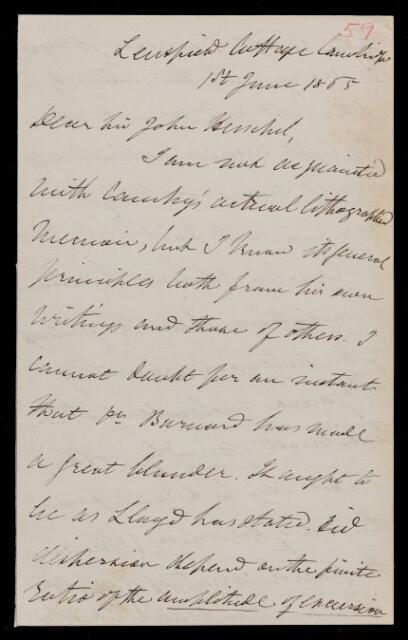 59
Lensfield Cottage Cambridge
1st June 1865
Dear Sir John Herschel,
I am not acquainted
with Cauchy's actual lithographed
Memoir, but I know its general
principles both from his own
writings and those of others. I
cannot doubt for an instant
that Barnard has made
a great blunder. It ought to
be as Lloyd has stated. Did
dispersion depend on the finite
ratio of the amplitude of excursion